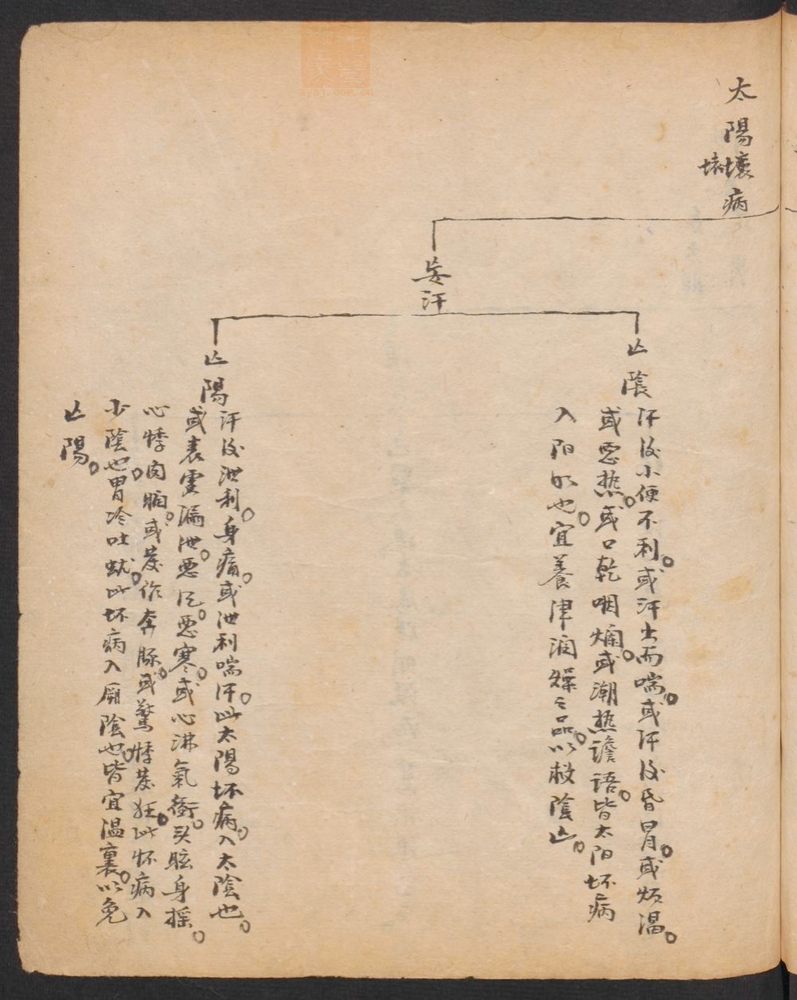 太陽壞病
坏
妄汗
亾陰
汗後小便不利。或汗出而喘。或汗後昏冒。或煩温。
或惡热。或口乾咽爛。或潮热譫語。皆太阳坏病
入阳明也。宜養津润燥之品。以救陰亾。
亾陽
汗後泄利。身痛。或泄利喘汗。此太陽坏病。入太陰也。
或表虛漏泄。惡风。惡寒。或心沸氣衝。头眩身搖。
心悸肉瞤。或发作奔豚。或驚悸发狂。此坏病入
少陰也。胃冷吐蚘。此坏病入厥陰也。皆宜温裏。以免
亾陽。